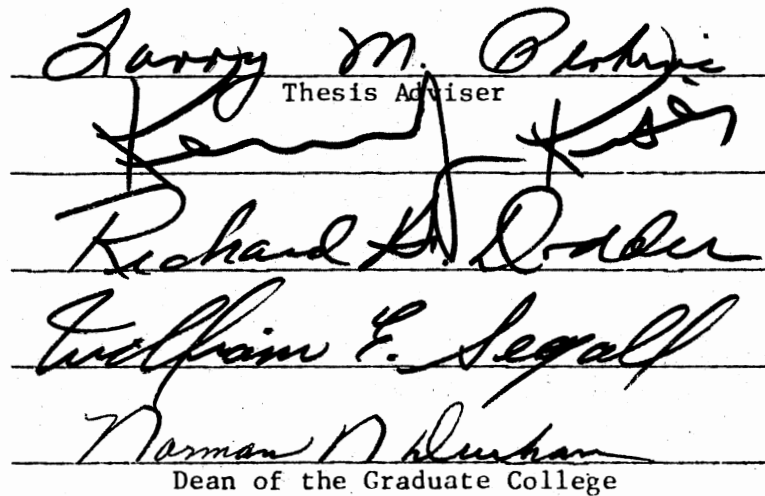 Larry M. Perkins
Thesis Adviser
Kenneth Kiser
Richard A. Dodder
William E. Segall
Norman N Durham
Dean of the Graduate College